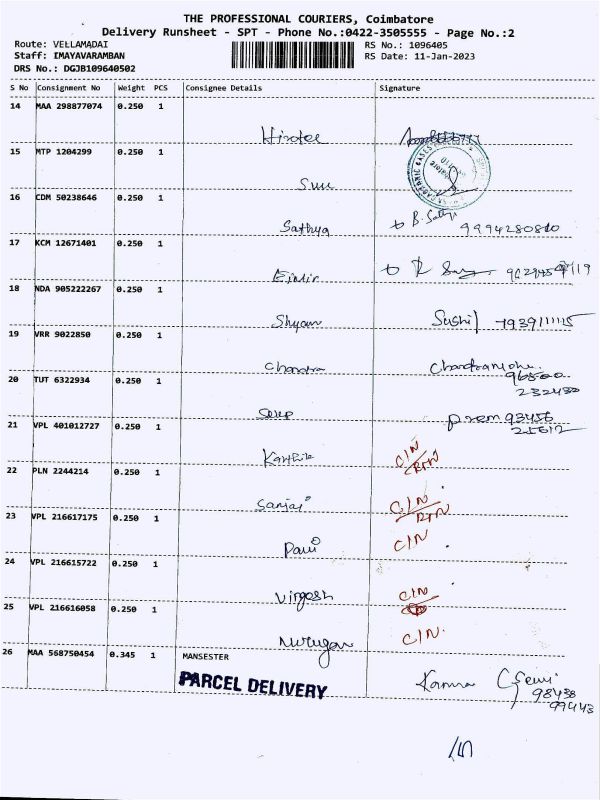 THE PROFESSIONAL COURIERS, Coimbatore
Delivery Runsheet - SPT - Phone No.:0422-3505555 - Page No.:2
Route: VELLAMADAI
Staff: IMAYAVARAMBAN
DRS No.: DGJB109640502
RS No.: 1096405
RS Date: 11-Jan-2023
S No Consignment No Weight PCS Consignee Details Signature
14 MAA 298877074 0.250 1
15 MTP 1204299 0.250 1
16 CDM 50238646 0.250 1
Sathya B. 9994280810
17 KCM 12671401 0.250 1
18 NDA 905222267 0.250 1
Shyam Sushil 7939111115
19 VRR 9022850 0.250 1
Chandra
20 TUT 6322934 0.250 1
232430
21 VPL 401012727 0.250 1
prem 93456
25612
Karthik C/N
RTN
22 PLN 2244214 0.250 1
Sanjai C/N
RTN
23 VPL 216617175 0.250 1
C/N
24 VPL 216615722 0.250 1
Virgesh C/N
25 VPL 216616058 0.250 1
Murugan C/N
26 MAA 568750454 0.345 1 MANSESTER
PARCEL DELIVERY
98438
99443